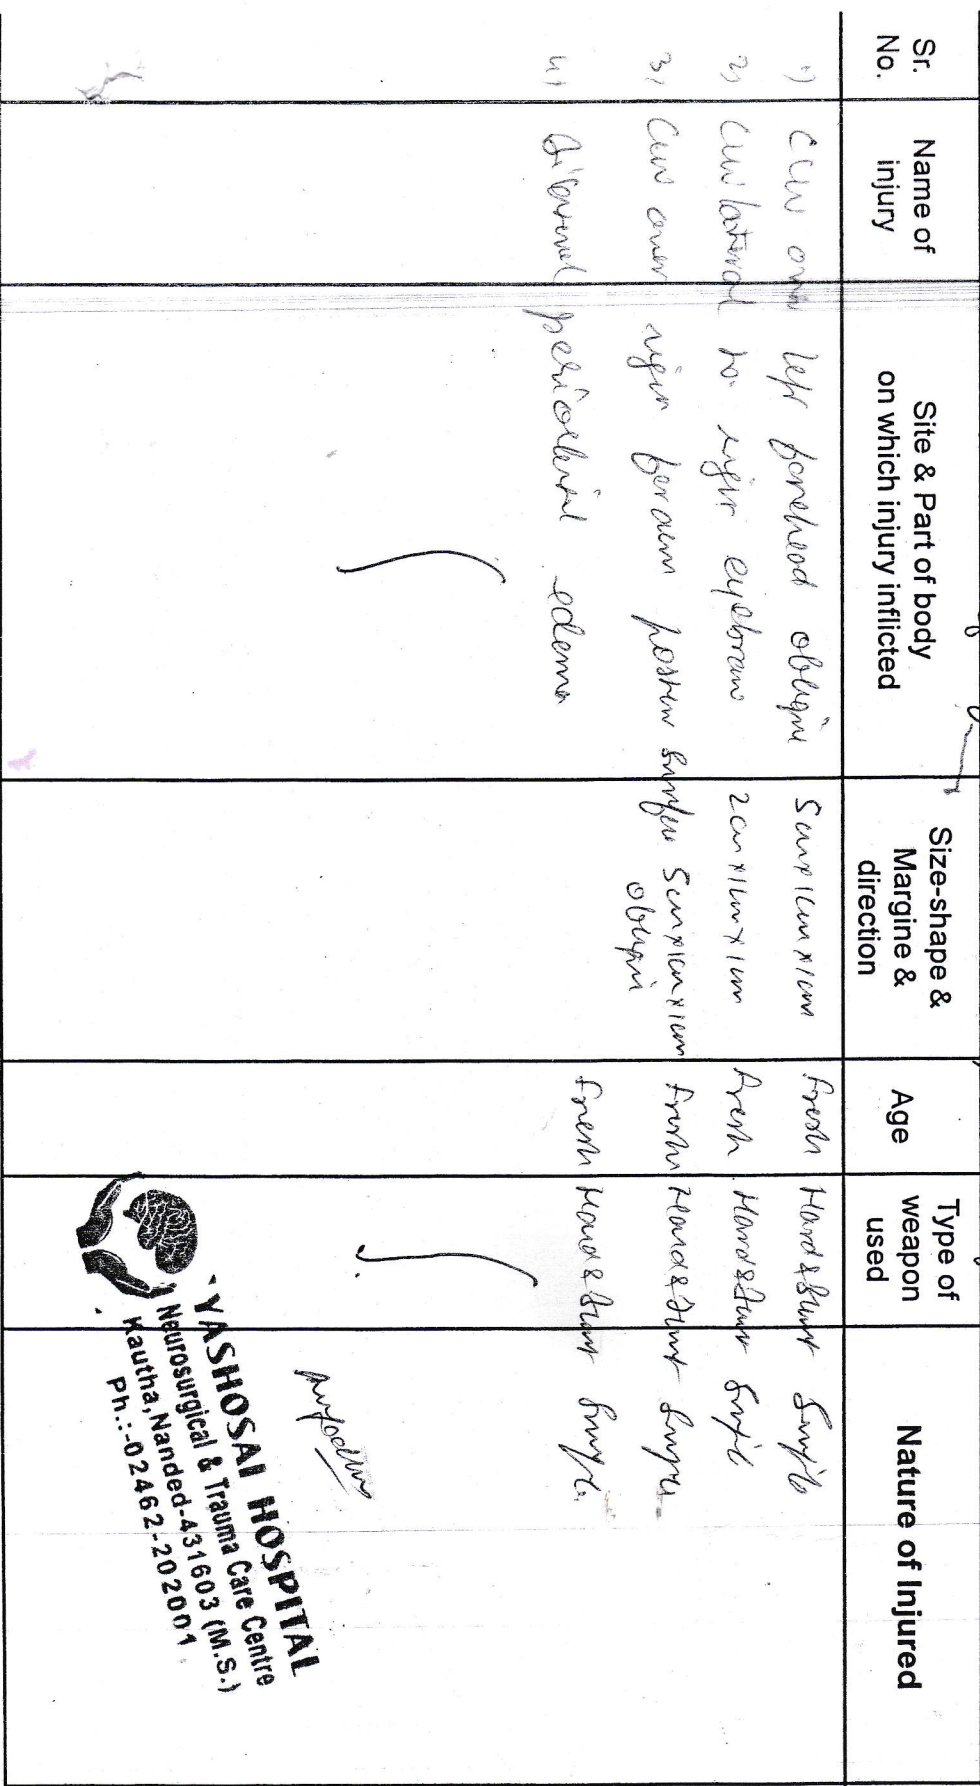 Sr. No.
Name of injury
Site & Part of body on which injury inflicted
Size-shape & Margine & direction
Age
Type of weapon used
Nature of Injured
1) CLW over left forehead oblique 5cmx1cmx1cm fresh Hard & blunt Simple
2) CLW lateral to right eyebrow 2cmx1cmx1cm fresh Hard & blunt Simple
3) CLW over right forearm posterior surface 5cmx1cmx1cm fresh Hard & blunt Simple
oblique
4) Bilateral periorbital edema fresh Hard & blunt Simple
YASHOSAI HOSPITAL
Neurosurgical & Trauma Care Centre
Kautha, Nanded-431603 (M.S.)
Ph.:-02462-202001